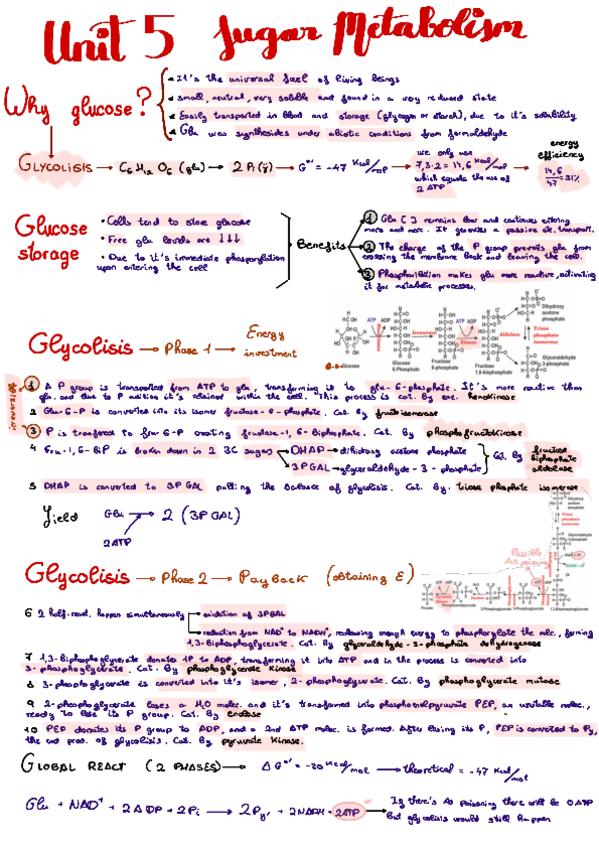 Unit 5 Sugar Metabolism
Why glucose?
• It's the universal fuel of living beings
• small, neutral, very soluble and found in a very reduced state
• Easily transported in blood and storage (glycogen or starch), due to it's solubility
• Glu was synthesides under abiotic conditions from formaldehyde
GLYCOLISIS → C6H12O6 (glu) → 2 Pi(y) → G°' = -47 Kcal/mol → we only use 7,3·2 = 14,6 Kcal/mol which equals the use of 2 ATP → energy efficiency 14,6/47 = 31%
Glucose storage
• Cells tend to store glucose
• Free glu levels are ↓↓↓
• Due to it's immediate phosporylation upon entering the cell
Benefits
1 Glu [ ] remains low and continues entering more and more. It provides a passive transport.
2 The charge of the P group prevents glu from crossing the membrane back and leaving the cell.
3 Phosphorilation makes glu more reactive, activating it for metabolic processes.
Glycolisis → Phase 1 → Energy investment
ATP ADP
ATP ADP
Isomerase
Aldolase
Triose phosphate isomerase
Dihydroxy acetone phosphate
Glyceraldehyde 3-phosphate
Glucose
Glucose 6-Phosphate
Fructose 6-Phosphate
Fructose 1,6-bisphosphate
1 A P group is transported from ATP to glu, transforming it to glu-6-phosphate. It's more reactive than
glu and due to P adition it's retained within the cell. This process is cat. By enz. hexokinase
2 Glu-6-P is converted into its isomer fructose-6-phosphate. Cat. By fructoisomerase
3 P is transfered to fru-6-P creating fructose-1,6-Biphosphate. Cat. By phosphofructokinase
4 Fru-1,6-BiP is broken down in 2 3C sugars
DHAP → dihidroxy acetone phosphate
3PGAL → glyceraldehyde-3-phosphate
Cat. By fructose biphosphate aldolase
5 DHAP is converted to 3PGAL pulling the balance of glycolisis. Cat. By: triose phosphate isomerase
Yield Glu → 2 (3PGAL)
2ATP
Glycolisis → Phase 2 → Payback (obtaining E)
6 2 half-react. happen simultaneously
oxidation of 3PGAL
reduction from NAD+ to NADH, realeasing enough energy to phosphorylate the mlc., forming
1,3-Biphosphoglycerate. Cat. By glyceraldehyde-3-phosphate dehydrogenase
7 1,3-Biphosphoglycerate donates 1P to ADP transforming it into ATP and in the process is converted into
3-phosphoglycerate. Cat. By phosphoglycerate kinase
8 3-phosphoglycerate is converted into it's isomer, 2-phosphoglycerate. Cat. By phosphoglycerate mutase
9 2-phosphoglycerate loses a H2O molec. and it's transformed into phosphoenolpyruvate PEP, an unstable molec.,
ready to lose its P group. Cat. By enolase
10 PEP donates its P group to ADP, and a 2nd ATP molec. is formed. After losing its P, PEP is converted to Py,
the end prod. of glycolisis. Cat. By pyruvate kinase.
GLOBAL REACT (2 PHASES) → ΔG°' = -20 Kcal/mol → theoretical = -47 Kcal/mol
Glu + NAD+ + 2ADP + 2Pi → 2Py + 2NADH + 2ATP → If there's As poisoning there will be 0ATP
but glycolisis would still happen